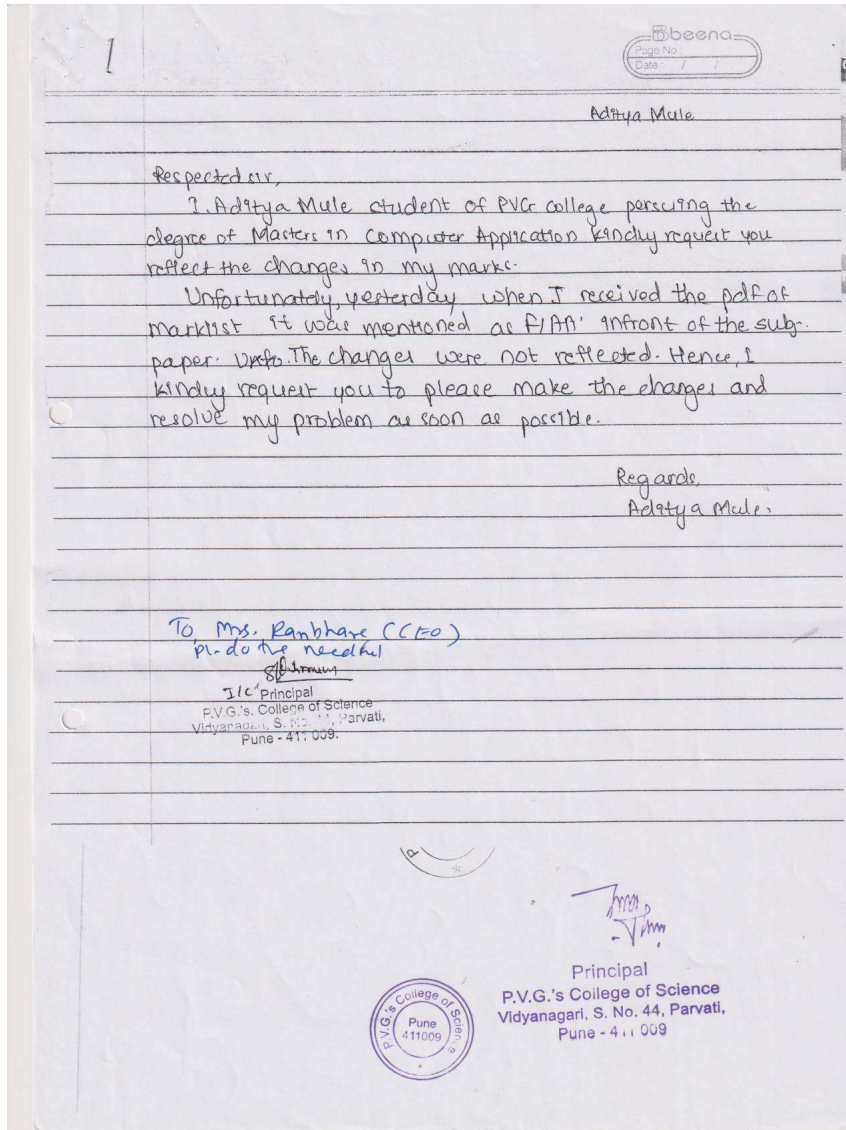 1
beena
Page No :
Date : / /
Aditya Mule
Respected sir,
I. Aditya Mule student of PVG college persuing the
degree of Masters in Computer Application kindly request you
reflect the changes in my marks.
Unfortunately, yesterday when I received the pdf of
marklist it was mentioned as infront of the sub-
paper. The changes were not reflected. Hence, I
kindly request you to please make the changes and
resolve my problem as soon as possible.
Regards,
Aditya Mule.
To, Mrs. Ranbhare (CEO)
Pl. do the needful
I/C Principal
P.V.G.'s. College of Science
Vidyanagari, S. No. Parvati,
Pune - 411 009.
Principal
P.V.G.'s College of Science
Vidyanagari, S. No. 44, Parvati,
Pune - 411 009
P.V.G.'s College of Science
Pune
411009